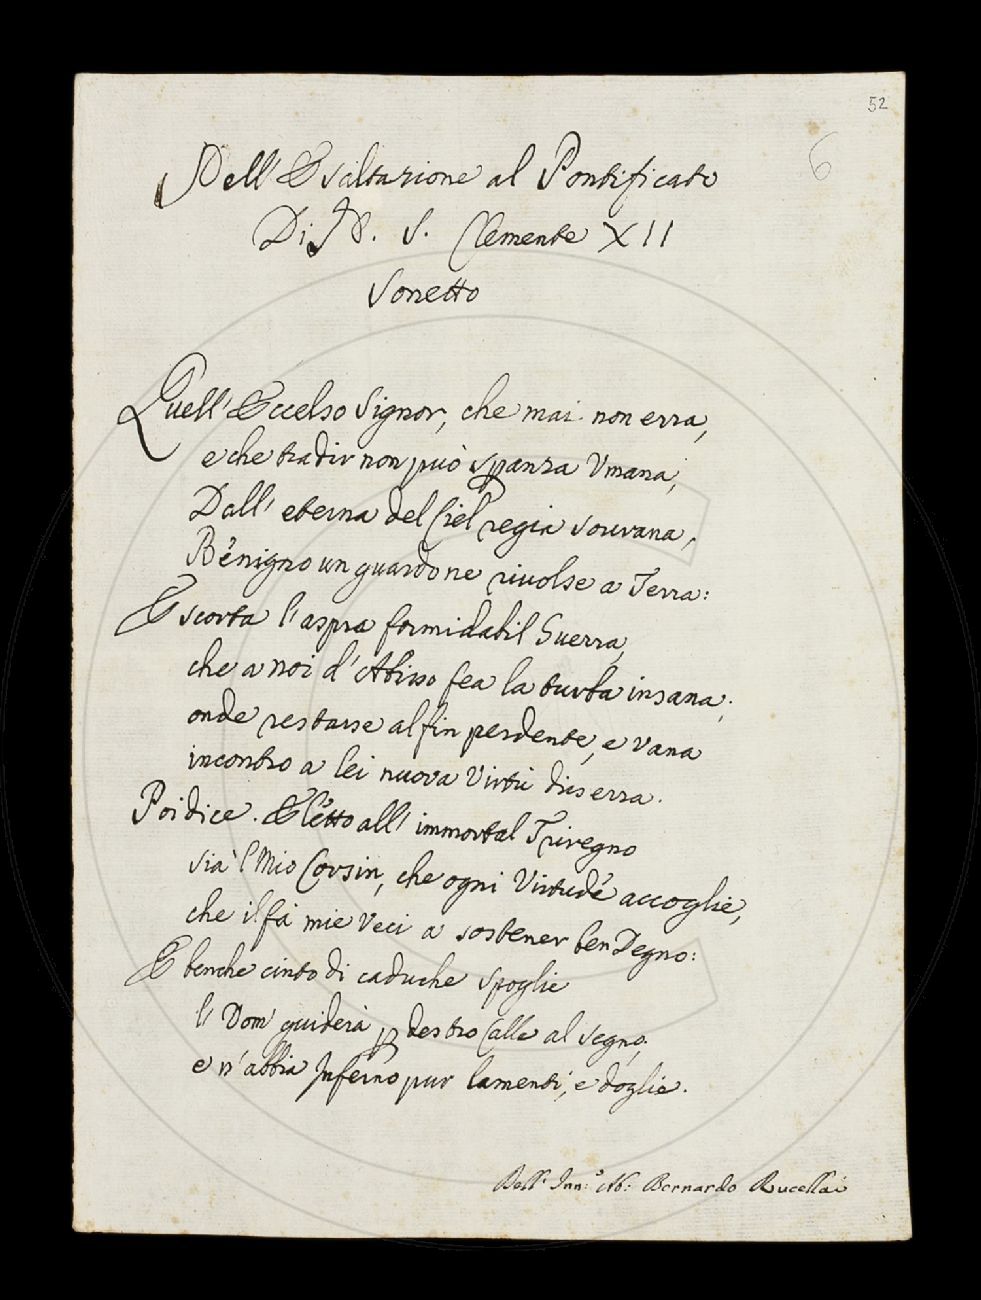 52
6
Dell'Esaltazione al Pontificato
Di N. S. Clemente XII
Sonetto
Quell'Eccelso Signor, che mai non erra,
e che tradir non può spanza Umana,
Dall'eterna del Ciel regia sovrana,
Benigno un guardo ne rivolse a Terra:
E scorta l'aspra formidabil Guerra,
che a noi d'Abisso fea la turba insana;
onde restarse alfin perdente, e vana
incontro a lei nuova Virtù disserra.
Poi dice. Eletto all'immortal Triregno
sia'l Mio Corsin, che ogni Virtude accoglie,
che il fà mie Veci a sostener ben Degno:
E benche cinto di caduche spoglie
l'Dom guiderà p destro Calle al segno;
e n'abbia Inferno pur lamenti, e doglie.
Dell' Bernardo Rucellai